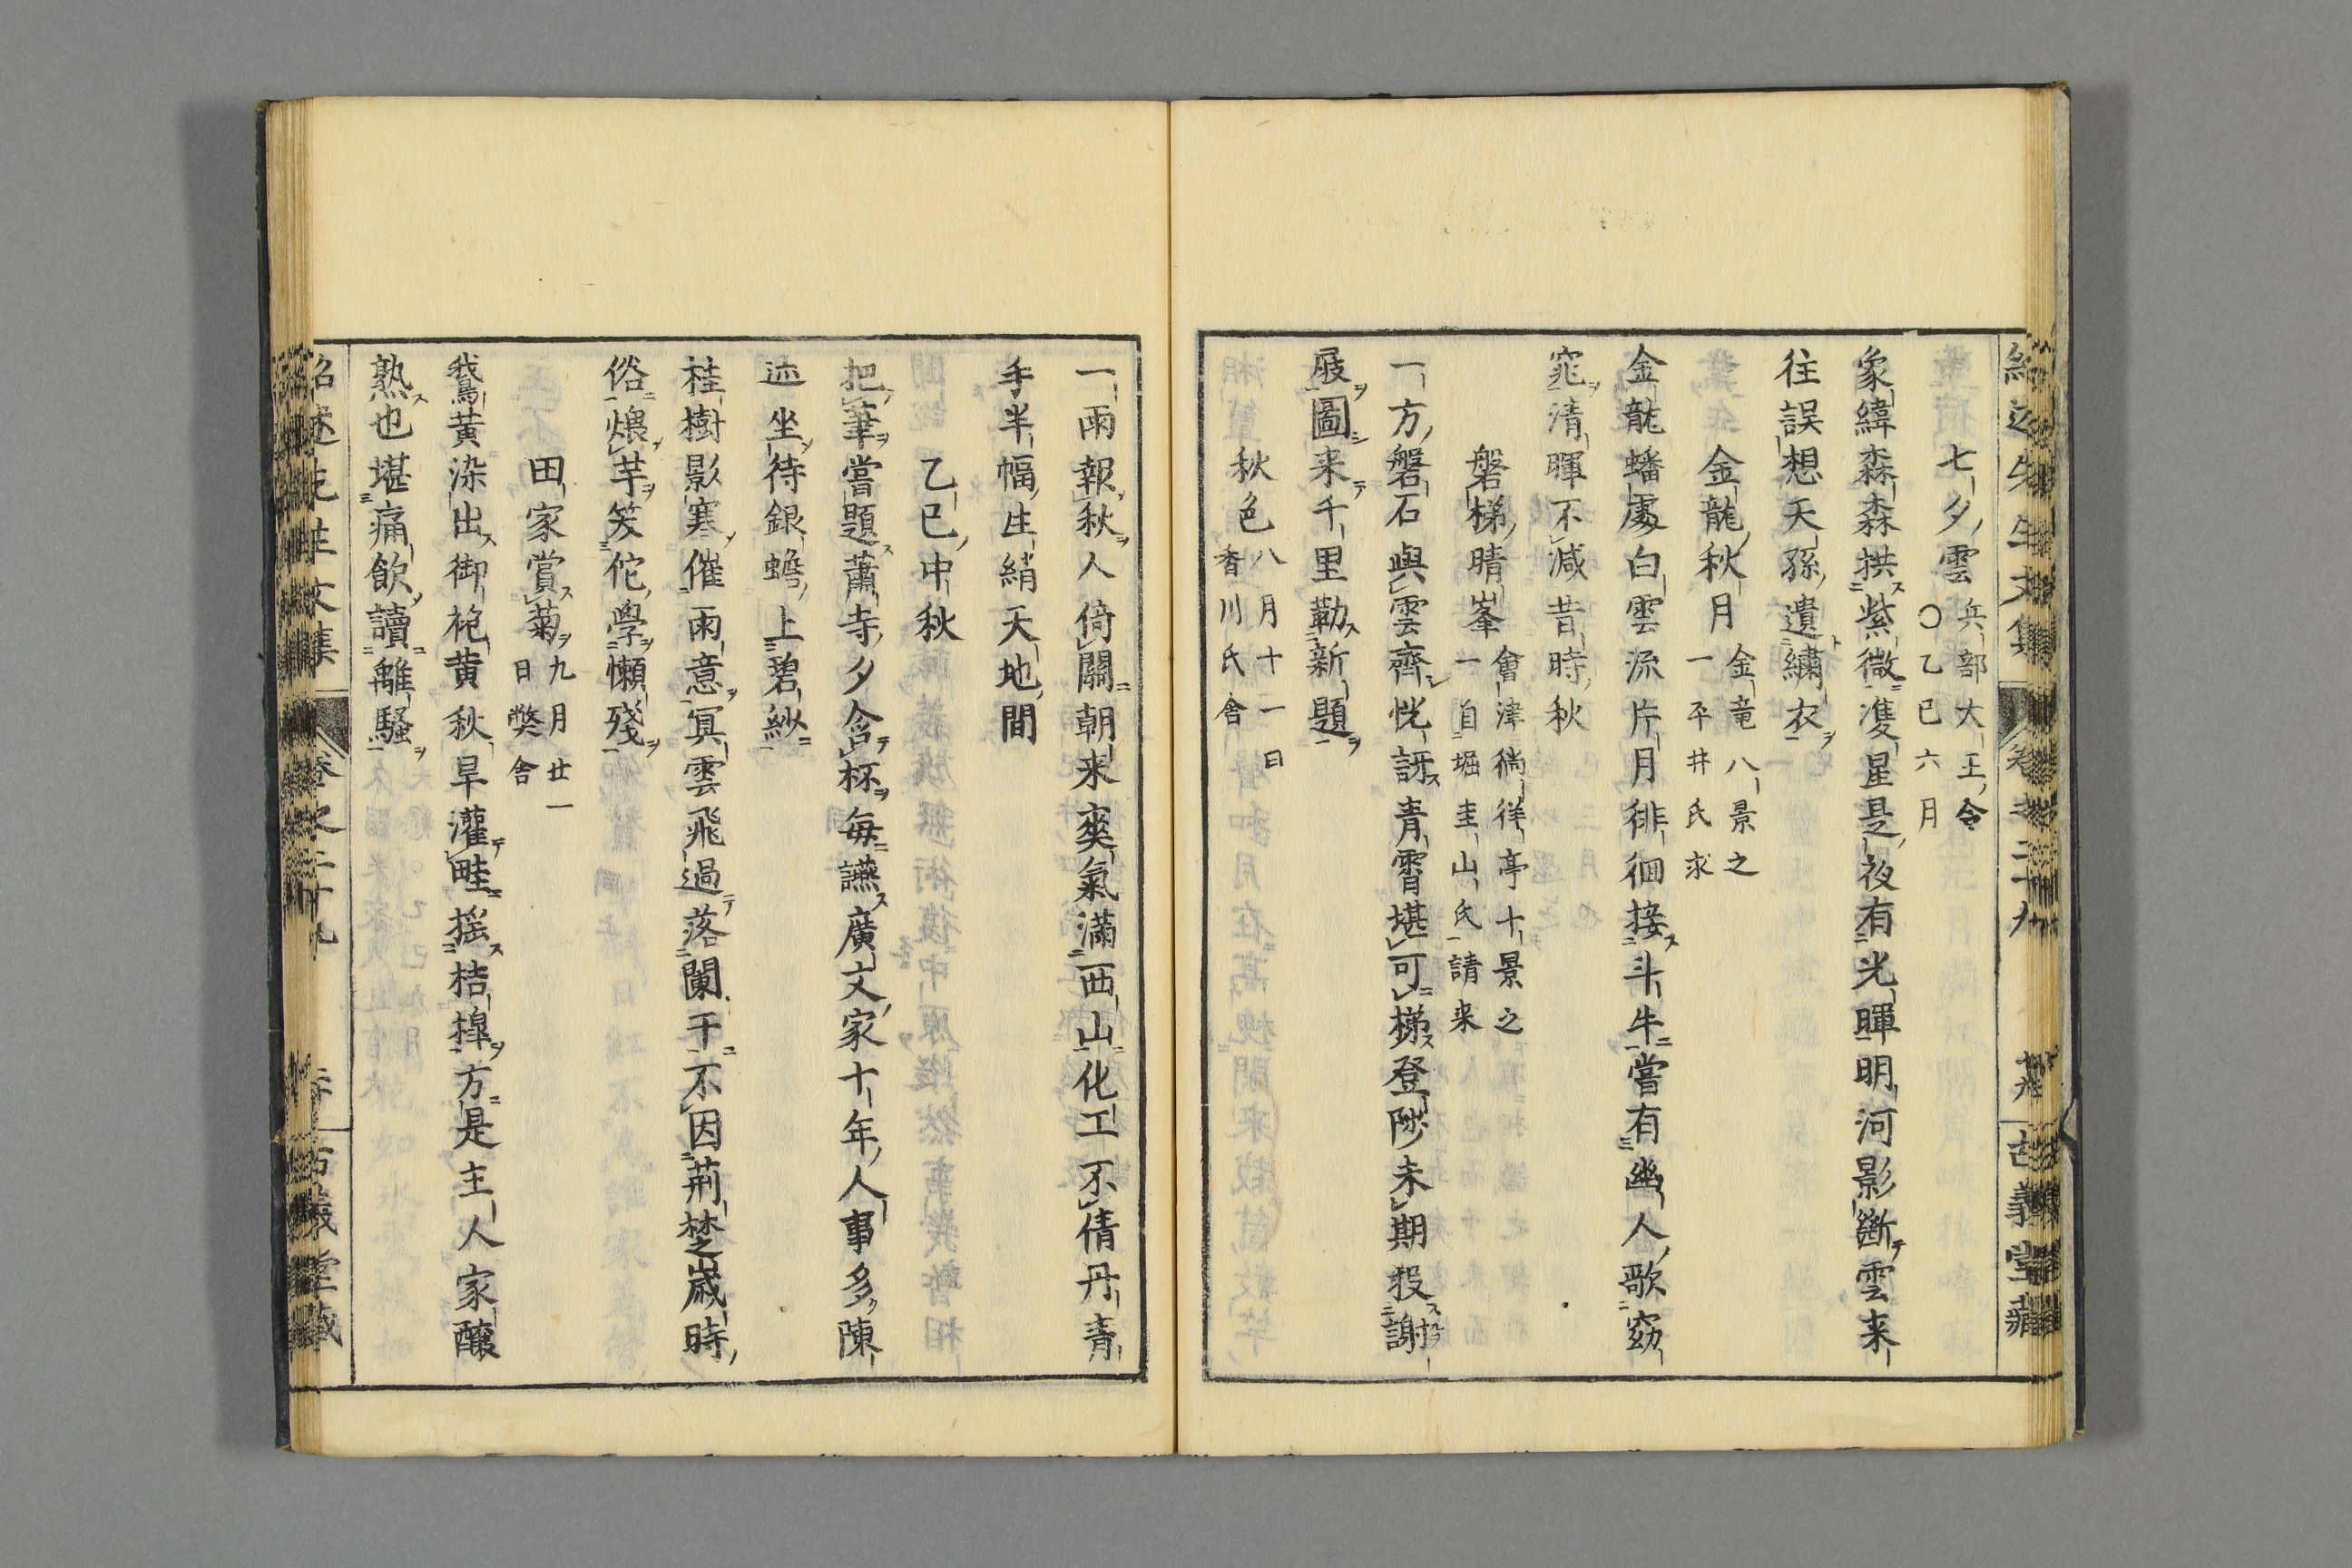 七夕雲 兵部大王令
○乙巳六月
象緯森森拱紫微溭星是夜有光暉明河影斷雲来
往誤想天孫遺繡衣
金龍秋月 金竜八景之
一平井氏求
金龍蟠處白雲流片月徘徊接斗牛嘗有幽人歌窈
窕清暉不減昔時秋
磐梯晴峯 會津徜徉亭十景之
一自堀圭山氏請来
一方磐石與雲齊恍訝青霄堪可梯登陟未期投謝
屐圖来千里勒新題
秋色 八月十二日
香川氏舎
一雨報秋人倚闌朝来爽氣滿西山化工不倩丹青
手半幅生綃天地間
乙巳中秋
把筆嘗題蕭寺夕含杯每讌廣文家十年人事多陳
迹坐待銀蟾上碧紗
桂樹影寒催雨意冥雲飛過落闌干不因荊楚歲時
俗煨芋笑佗學懶殘
田家賞菊 九月廿一
日弊舎
鵞黄染出御袍黄秋旱灌畦揺桔槹方是主人家釀
熟也堪痛飲讀離騷
紹述先生文集 卷之二十九 古義堂藏